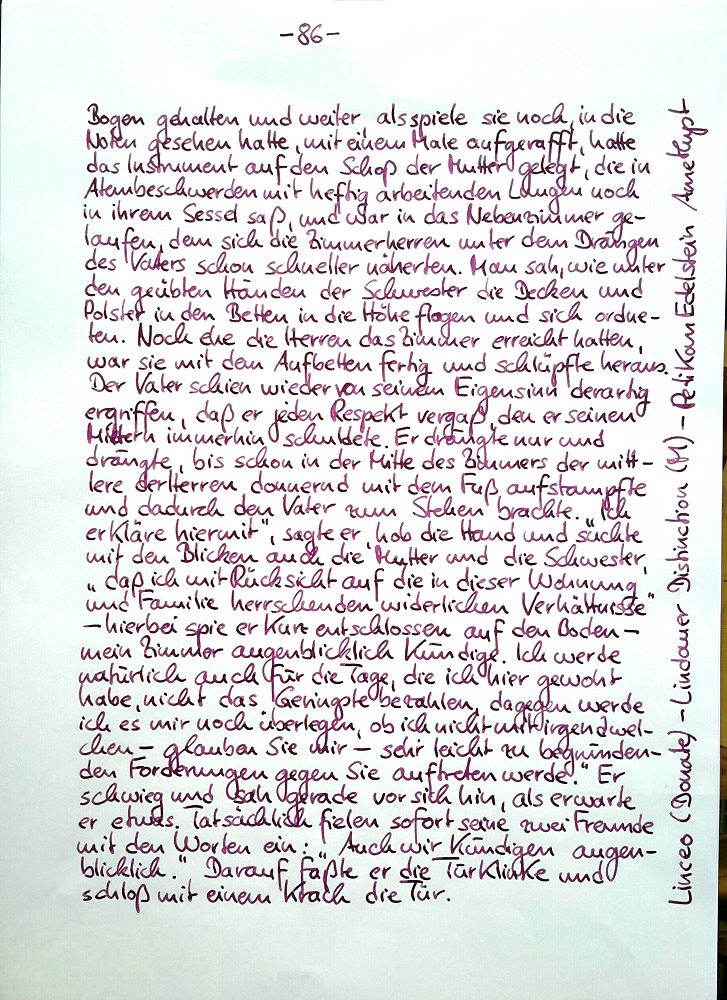 -86-
Bogen gehalten und weiter, als spiele sie noch, in die
Noten gesehen hatte, mit einem Male aufgerafft, hatte
das Instrument auf den Schoß der Mutter gelegt, die in
Atembeschwerden mit heftig arbeitenden Lungen noch
in ihrem Sessel saß, und war in das Nebenzimmer ge-
laufen, dem sich die Zimmerherren unter dem Drängen
des Vaters schon schneller näherten. Man sah, wie unter
den geübten Händen der Schwester die Decken und
Polster in den Betten in die Höhe flogen und sich ordne-
ten. Noch ehe die Herren das Zimmer erreicht hatten,
war sie mit dem Aufbetten fertig und schlüpfte heraus.
Der Vater schien wieder von seinem Eigensinn derartig
ergriffen, daß er jeden Respekt vergaß, den er seinen
Mietern immerhin schuldete. Er drängte nur und
drängte, bis schon in der Mitte des Zimmers der mitt-
lere der Herren donnernd mit dem Fuß aufstampfte
und dadurch den Vater zum Stehen brachte. „Ich
erkläre hiermit", sagte er, hob die Hand und suchte
mit den Blicken auch die Mutter und die Schwester,
„daß ich mit Rücksicht auf die in dieser Wohnung
und Familie herrschenden widerlichen Verhältnisse"
– hierbei spie er kurz entschlossen auf den Boden –
mein Zimmer augenblicklich kündige. Ich werde
natürlich auch für die Tage, die ich hier gewohnt
habe, nicht das Geringste bezahlen, dagegen werde
ich es mir noch überlegen, ob ich nicht mit irgendwel-
chen – glauben Sie mir – sehr leicht zu begründen-
den Forderungen gegen Sie auftreten werde." Er
schwieg und sah gerade vor sich hin, als erwarte
er etwas. Tatsächlich fielen sofort seine zwei Freunde
mit den Worten ein: „Auch wir kündigen augen-
blicklich." Darauf faßte er die Türklinke und
schloß mit einem Krach die Tür.
Linceo (Donate) – Lindauer Distinction (M) – Pelikan Edelstein Amethyst